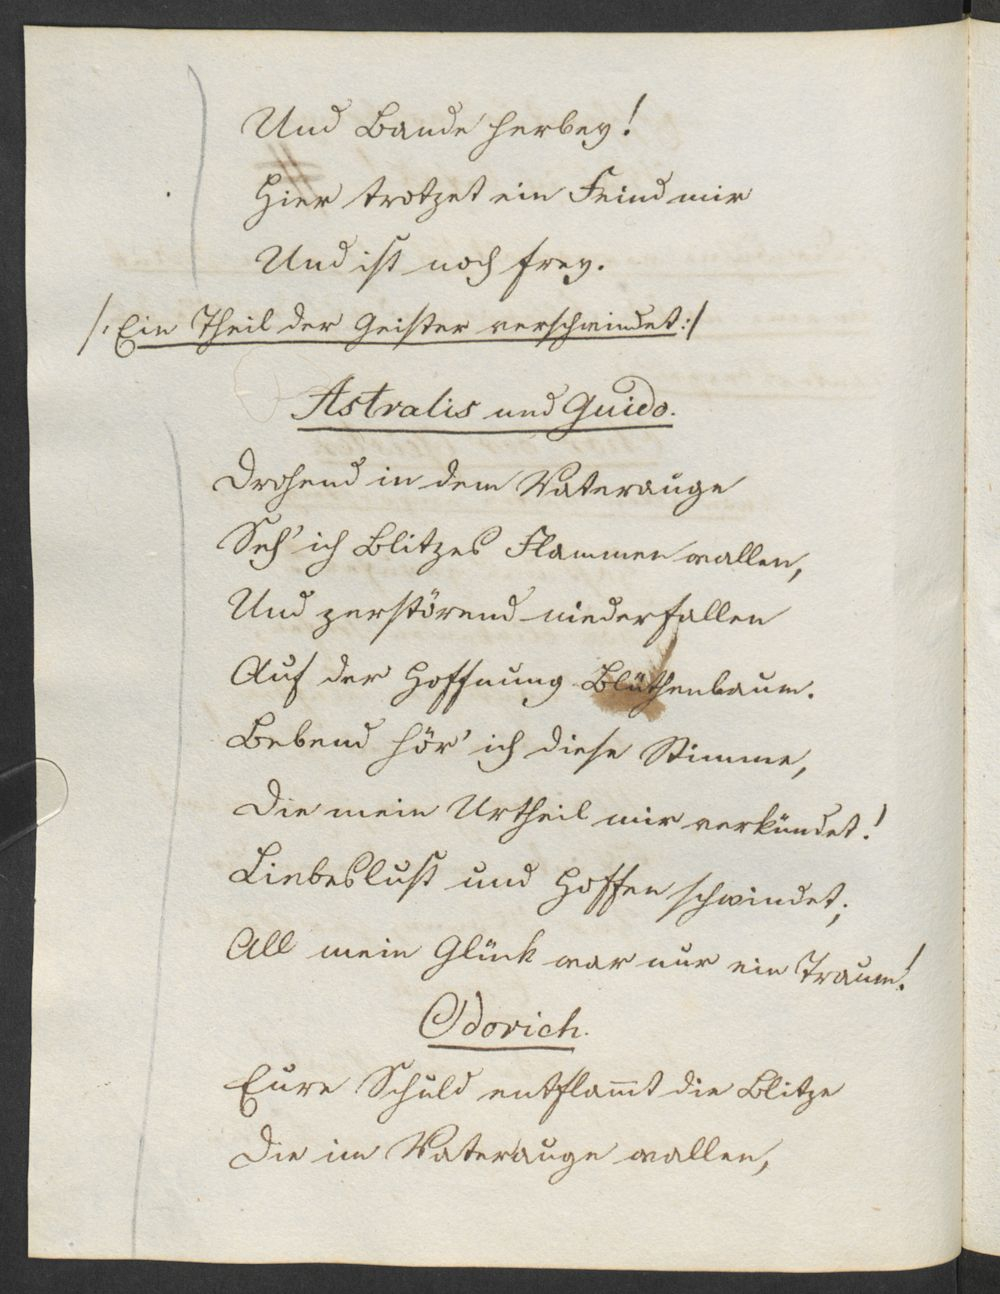 Und Bande herbey!
Hier trotzet ein Feind mir
Und ist noch frey.
/: Ein Theil der Geister verschwindet :/
Astralis und Guido.
Drohend in dem Vaterauge
Seh' ich Blitzes Flammen wallen,
Und zerstörend niederfallen
Auf der Hoffnung Blüthenbaum.
Bebend hör' ich diese Stimme,
Die mein Urtheil mir verkündet!
Liebeslust und Hoffen schwindet;
All mein Glück war nur ein Traum!
Odorich.
Eure Schuld entflam̅t die Blitze
Die im Vaterauge wallen,